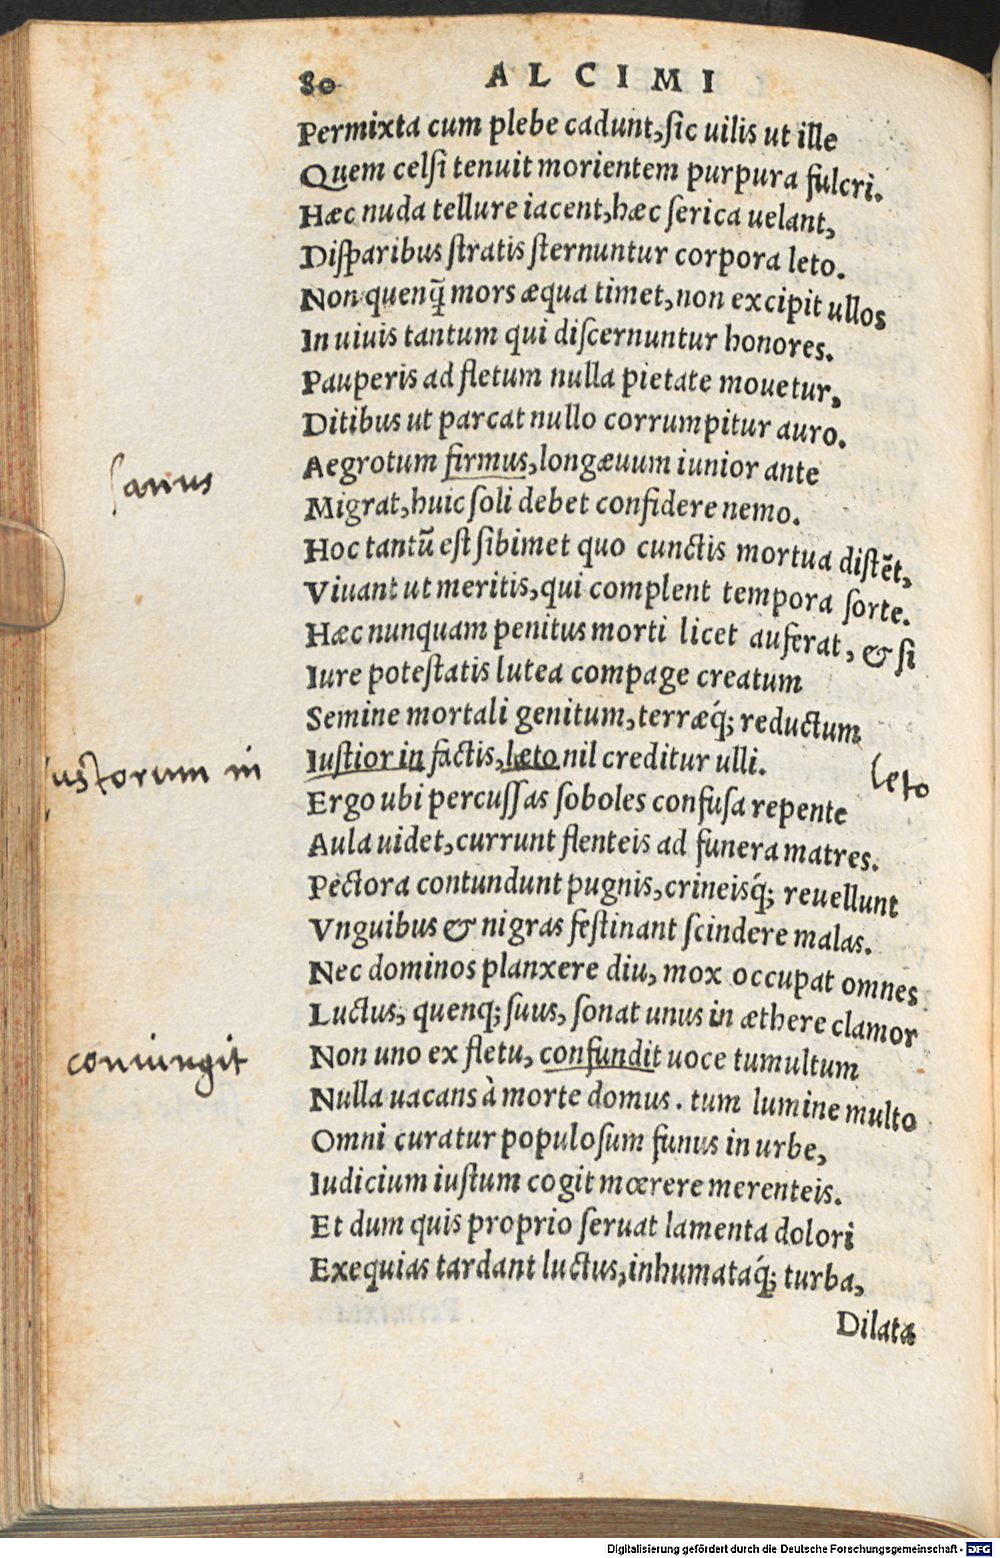 80 ALCIMI
Permixta cum plebe cadunt, sic uilis ut ille
Quem celsi tenuit morientem purpura fulcri.
Hæc nuda tellure iacent, hæc serica uelant,
Disparibus stratis sternuntur corpora leto.
Non quenq̃ mors æqua timet, non excipit ullos
In uiuis tantum qui discernuntur honores.
Pauperis ad fletum nulla pietate mouetur,
Ditibus ut parcat nullo corrumpitur auro.
Aegrotum firmus, longæuum iunior ante
sanus
Migrat, huic soli debet confidere nemo.
Hoc tantũ est sibimet quo cunctis mortua distẽt,
Viuant ut meritis, qui complent tempora sorte.
Hæc nunquam penitus morti licet auferat, & si
Iure potestatis lutea compage creatum
Semine mortali genitum, terræq́; reductum
Iustior in factis, læto nil creditur ulli.
iustorum in
leto
Ergo ubi percussas soboles confusa repente
Aula uidet, currunt flenteis ad funera matres.
Pectora contundunt pugnis, crineisq́; reuellunt
Vnguibus & nigras festinant scindere malas.
Nec dominos planxere diu, mox occupat omnes
Luctus, quenq; suus, sonat unus in æthere clamor
Non uno ex fletu, confundit uoce tumultum
coniungit
Nulla uacans à morte domus. tum lumine multo
Omni curatur populosum funus in urbe,
Iudicium iustum cogit mœrere merenteis.
Et dum quis proprio seruat lamenta dolori
Exequias tardant luctus, inhumataq́; turba,
Dilata
Digitalisierung gefördert durch die Deutsche Forschungsgemeinschaft - DFG